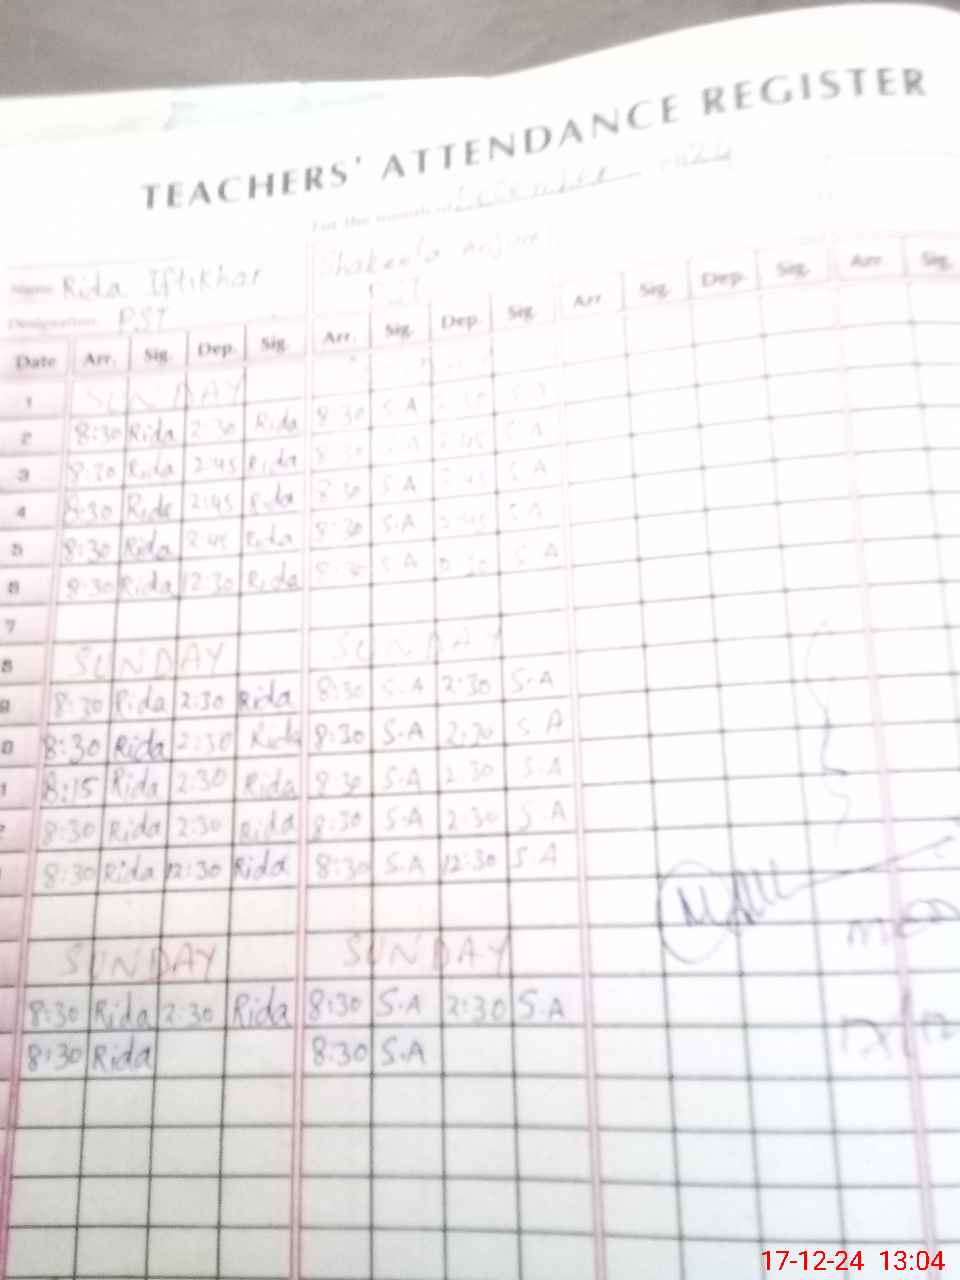 TEACHERS' ATTENDANCE REGISTER
For the month of December 2024
Name Rida Iftikhar Shakeela
Designation PST
Date Arr. Sig. Dep. Sig. Arr. Sig. Dep. Sig. Arr. Sig. Dep. Sig. Arr. Sig.
1 SUNDAY
2 8:30 Rida 2:30 Rida 8:30 S.A S.A
3 8:30 Rida 2:45 Rida 8:30 S.A 2:45 S.A
4 8:30 Rida 2:45 Rida 8:30 S.A 2:45 S.A
5 8:30 Rida 2:45 Rida 8:30 S.A 2:45 S.A
6 8:30 Rida 12:30 Rida 8:30 S.A S.A
7
8 SUNDAY SUNDAY
9 8:30 Rida 2:30 Rida 8:30 S.A 2:30 S.A
0 8:30 Rida 2:30 Rida 8:30 S.A 2:30 S.A
1 8:15 Rida 2:30 Rida 8:30 S.A 2:30 S.A
2 8:30 Rida 2:30 Rida 8:30 S.A 2:30 S.A
8:30 Rida 12:30 Rida 8:30 S.A 12:30 S.A
SUNDAY SUNDAY
8:30 Rida 2:30 Rida 8:30 S.A 2:30 S.A
8:30 Rida 8:30 S.A
17-12-24 13:04